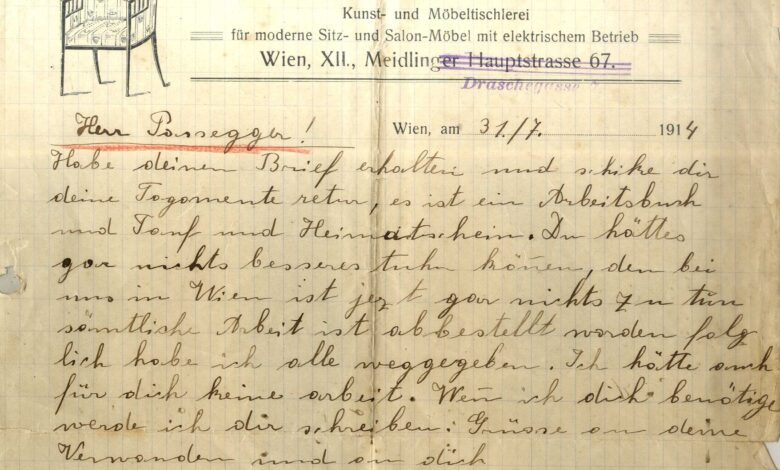 Kunst- und Möbeltischlerei
für moderne Sitz- und Salon-Möbel mit elektrischem Betrieb
Wien, XII., Meidlinger Hauptstrasse 67.
Draschegasse
Herr Possegger!
Wien, am 31/7. 1914
Habe deinen Brief erhalten und schike dir
deine Togomente retur, es ist ein Arbeitsbuch
und Tauf und Heimatschein. Du hättes
gar nichts besseres tuhn könen, den bei
uns in Wien ist jezt gar nichts zu tun
sämtliche Arbeit ist abbestellt worden folg
lich habe ich alle weggegeben. Ich hätte auch
für dich keine arbeit. Wen ich dich benötige
werde ich dir schreiben: Grüsse an deine
Verwanden und an dich